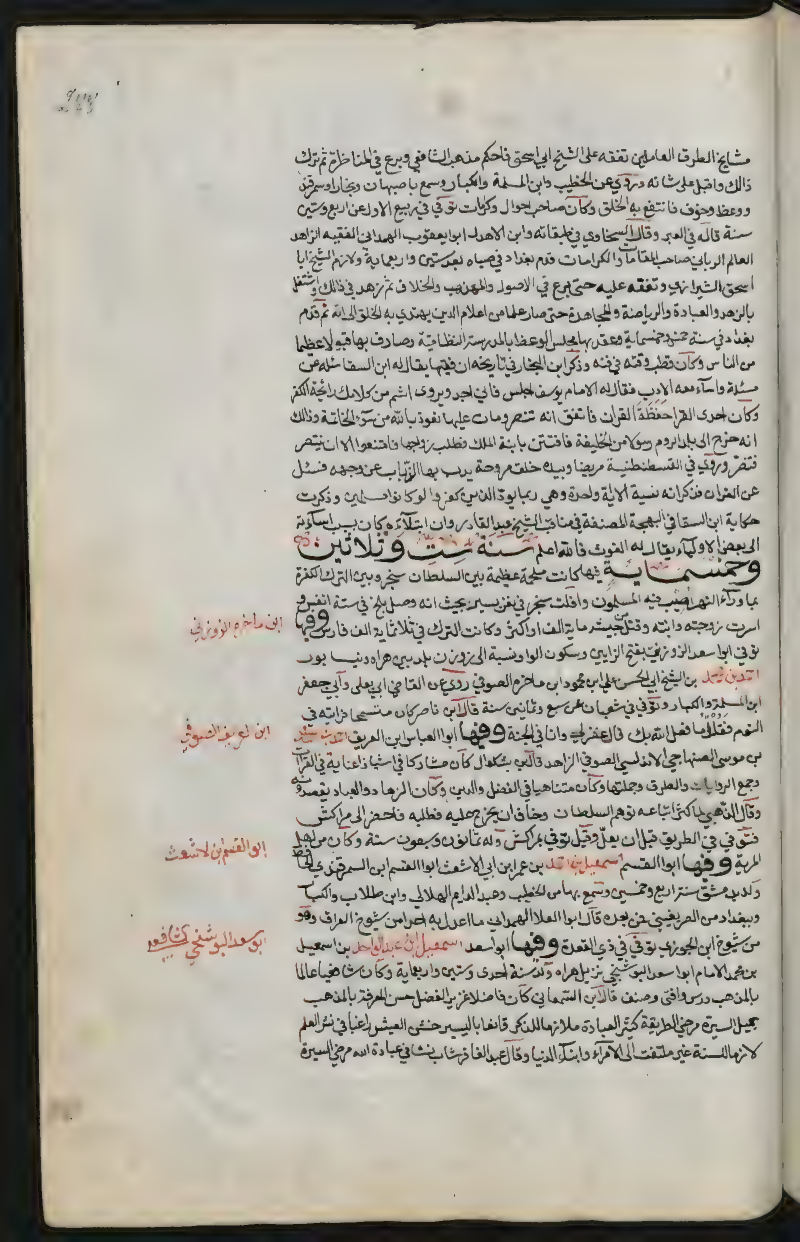 مشايخ الطرق العاملين تفقه على الشيخ ابي اسحق فاحكم مذهب الشافعي وبرع في المناظرة ثم ترك
ذالك واقبل على شانه وروي عن الخطيب وابن المسلمة والكبار وسمع باصبهان وبخارا وسمرقند
ووعظ وخوف فانتفع به الخلق وكان صاحب احوال وكرمات توفي في ربيع الاول عن اربع وستين
سنة قاله في العبر وقال السخاوي في طبقاته وابن الاهدل ابوا يعقوب الهمداني الفقيه الزاهد
العالم الرباني صاحب المقامات والكرامات قدم بغداد في صباه بعد ستين واربعماية ولازم الشيخ ابا
اسحق الشيرازي وتفقه عليه حتى برع في الاصول والمذهب والخلاف ثم زهد في ذالك واشتغل
بالزهد والعبادة والرياضة والمجاهدة حتى صار علما من اعلام الدين يهتدي به الخلق الى الله ثم قدم
بغداد في سنة خمس وخمسماية وعقد بها مجلس الوعظ بالمدرسة النظامية وصادف بها قبولا عظيما
من الناس وكان قطب وقته في فنه وذكر ابن النجار في تاريخه ان فقيها يقال له ابن السقا سئله عن
مسئلة واساء معه الادب فقال له الامام يوسف اجلس فاني اجد ويروى اشم من كلامك رائحة الكفر
وكان احدى القرا حفظة القرآن فاتفق انه تنصر ومات عليها نعوذ بالله من سوء الخاتمة وذالك
انه خرج الى بلد الروم رسولا من الخليفة فافتتن بابنة الملك فطلب زواجها فامتنعوا الا ان يتنصر
فتنصر وروي في القسطنطنية مريضا وبيده خلق مروحة يذب بها الذباب عن وجهه فسئل
عن القرآن فذكر انه نسيه الا اية واحدة وهي ربما يود الذين كفروا لو كانوا مسلمين وذكرت
حكاية ابن السقا في البهجة المصنفة في مناقب الشيخ عبد القادر وان ابتلاءه كان بسبب اساءته
الى بعض الاولياء يقال له الغوث فالله اعلم سنة ست وثلاثين
وخمسماية فيها كانت ملحمة عظيمة بين السلطان سنجر وبين الترك الكفرة
بما وراء النهر اصيب فيه المسلمون وافلت سنجر في نفر يسير بحيث انه وصل بلخ في ستة انفس و
اسرت زوجته وابنته وقتل من جيشه ماية الف او اكثر وكانت الترك في ثلاثماية الف فارس وفيها
توفي ابوا سعد الزوزني بفتح الزايين وسكون الواو نسبة الى زوزن بلد بين هراه ونيسابور
احمد بن محمد بن الشيخ ابي الحسن علي ابن محمود ابن ماخره الصوفي روى عن القاضي ابي يعلى وابي جعفر
ابن المسلمة والكبار وتوفي في شعبان عن سبع وثمانين سنة قال ابن ناصر كان متسمحا فرايته في
النوم فقلت ما فعل الله بك قال غفر لي وانا في الجنة وفيها ابوا العباس ابن العريف احمد بن محمد
بن موسى الصنهاجي الاندلسي الصوفي الزاهد قال ابن بشكوال كان مشاركا في اشيا ذا عناية في القراآت
وجمع الروايات والطرق وحملتها وكان متناهيا في الفضل والدين وكان الزهاد والعباد يقصدونه
وقال الذهبي لما كثر اتباعه توهم السلطان وخاف ان يخرج عليه فطلبه فاحضر الى مراكش
فتوفي في الطريق قبل ان يصل وقيل توفي بمراكش وله ثمانون وسبعون سنة وكان من اهل
المرية وفيها ابوا القسم اسمعيل بن احمد بن عمر ابن ابي الاشعث ابوا القسم ابن السمرقندي الحافظ
ولد بدمشق سنة اربع وخمسين وسمع بها من الخطيب وعبد الدايم الهلالي وابن طلاب والكبار
وببغداد من الصريفيني فمن بعده قال ابوا العلا الهمداني ما اعدل به احدا من شيوخ العراق وهو
من شيوخ ابن الجوزي توفي في ذي القعدة وفيها ابوا سعد اسمعيل ابن عبد الواحد بن اسمعيل
بن محمد الامام ابوا سعد البوشنجي نزيل هراه ولد سنة احدى وستين واربعماية وكان شافعيا عالما
بالمذهب درس وافتى وصنف قال ابن السمعاني كان فاضلا غزير الفضل حسن المعرفة بالمذهب
جميل السيرة مرضي الطريقة كثير العبادة ملازما للذكر قانعا باليسير خشن العيش راغبا في نشر العلم
لازما للسنة غير ملتفت الى الامراء وابناء الدنيا وقال عبد الغافر شاب نشا في عبادة الله مرضي السيرة
ابن ماخره الزوزني
ابن العريف الصوفي
ابوا القسم ابن لاشعث
ابو سعد البوشنجي الشافعي